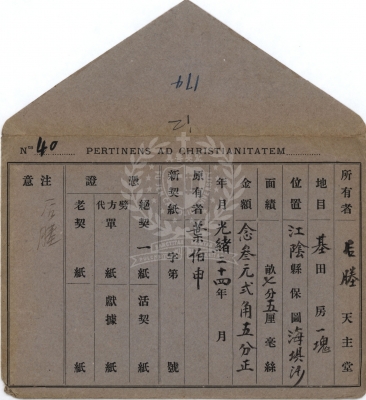 179
12
No 40 PERTINENS AD CHRISTIANITATEM
所有者 后塍 天主堂
地目 基田房一塊
位置 江陰縣保圖海垻沙
面績 畝七分五厘毫絲
金額 念叁元弍角五分正
年月 光緒二十四年 月
原有者 葉伯申
新契紙 字第 號
憑證
絕契一紙 活契 紙
劈方單 代 紙 獻據 紙
老契 紙 紙
注意
后塍